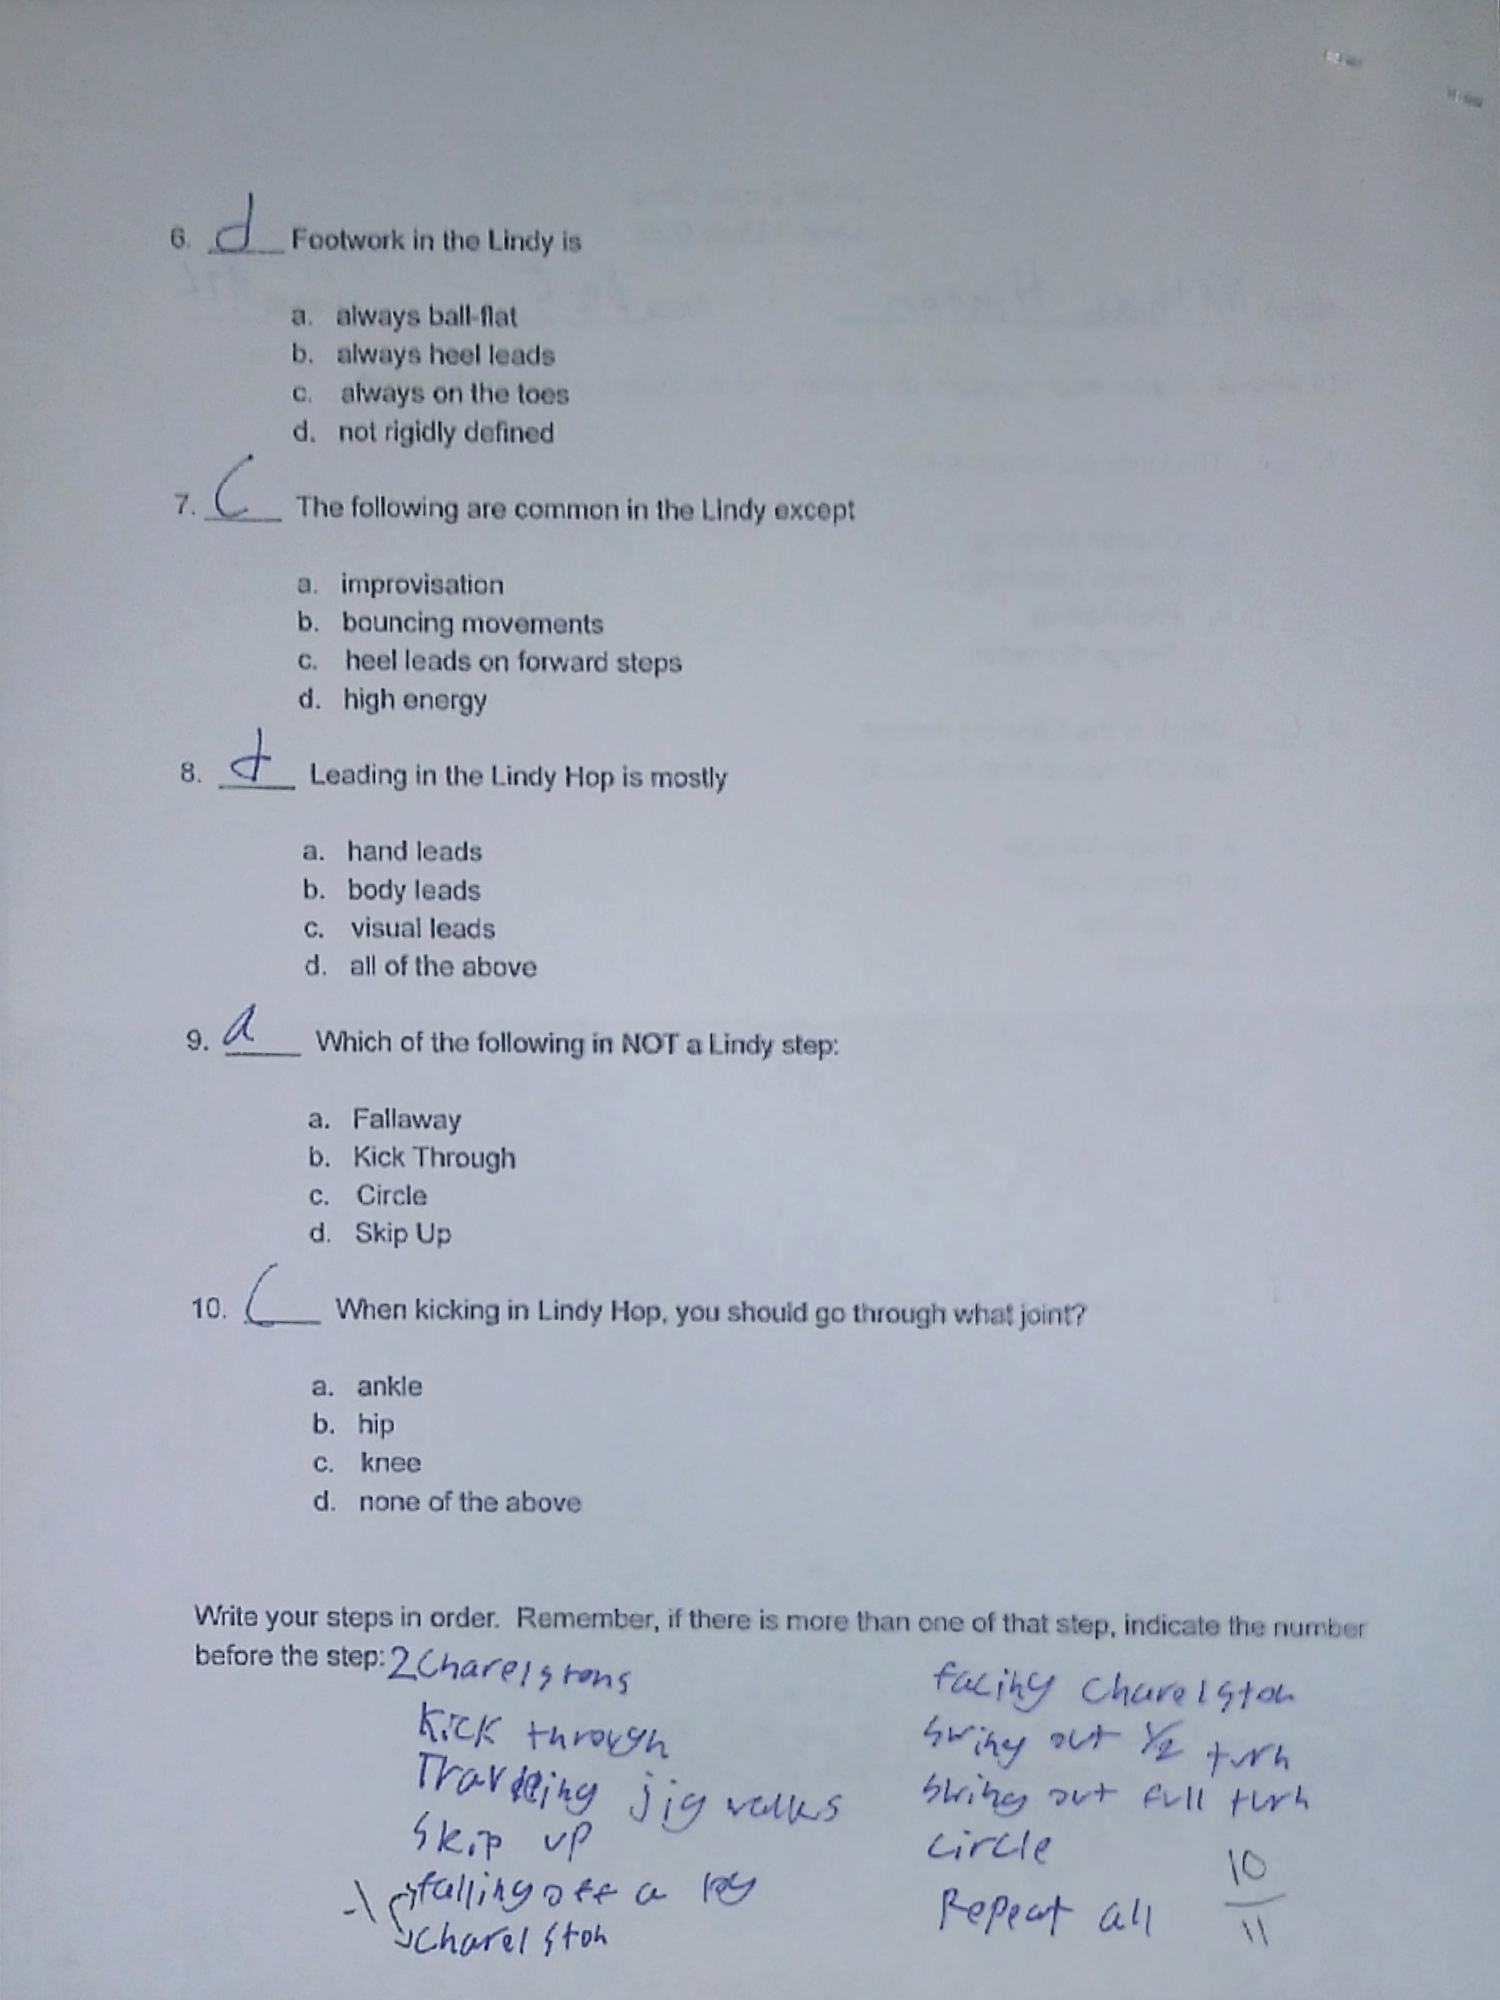 6. d Footwork in the Lindy is
a. always ball-flat
b. always heel leads
c. always on the toes
d. not rigidly defined
7. C The following are common in the Lindy except
a. improvisation
b. bouncing movements
c. heel leads on forward steps
d. high energy
8. d Leading in the Lindy Hop is mostly
a. hand leads
b. body leads
c. visual leads
d. all of the above
9. a Which of the following in NOT a Lindy step:
a. Fallaway
b. Kick Through
c. Circle
d. Skip Up
10. C When kicking in Lindy Hop, you should go through what joint?
a. ankle
b. hip
c. knee
d. none of the above
Write your steps in order. Remember, if there is more than one of that step, indicate the number
before the step: 2 Charelstons
Kick through
Traveling jig walks
Skip up
-1 falling off a log
Charelston
facing Charelston
Swing out 1/2 turn
Swing out full turn
circle
Repeat all
10
11